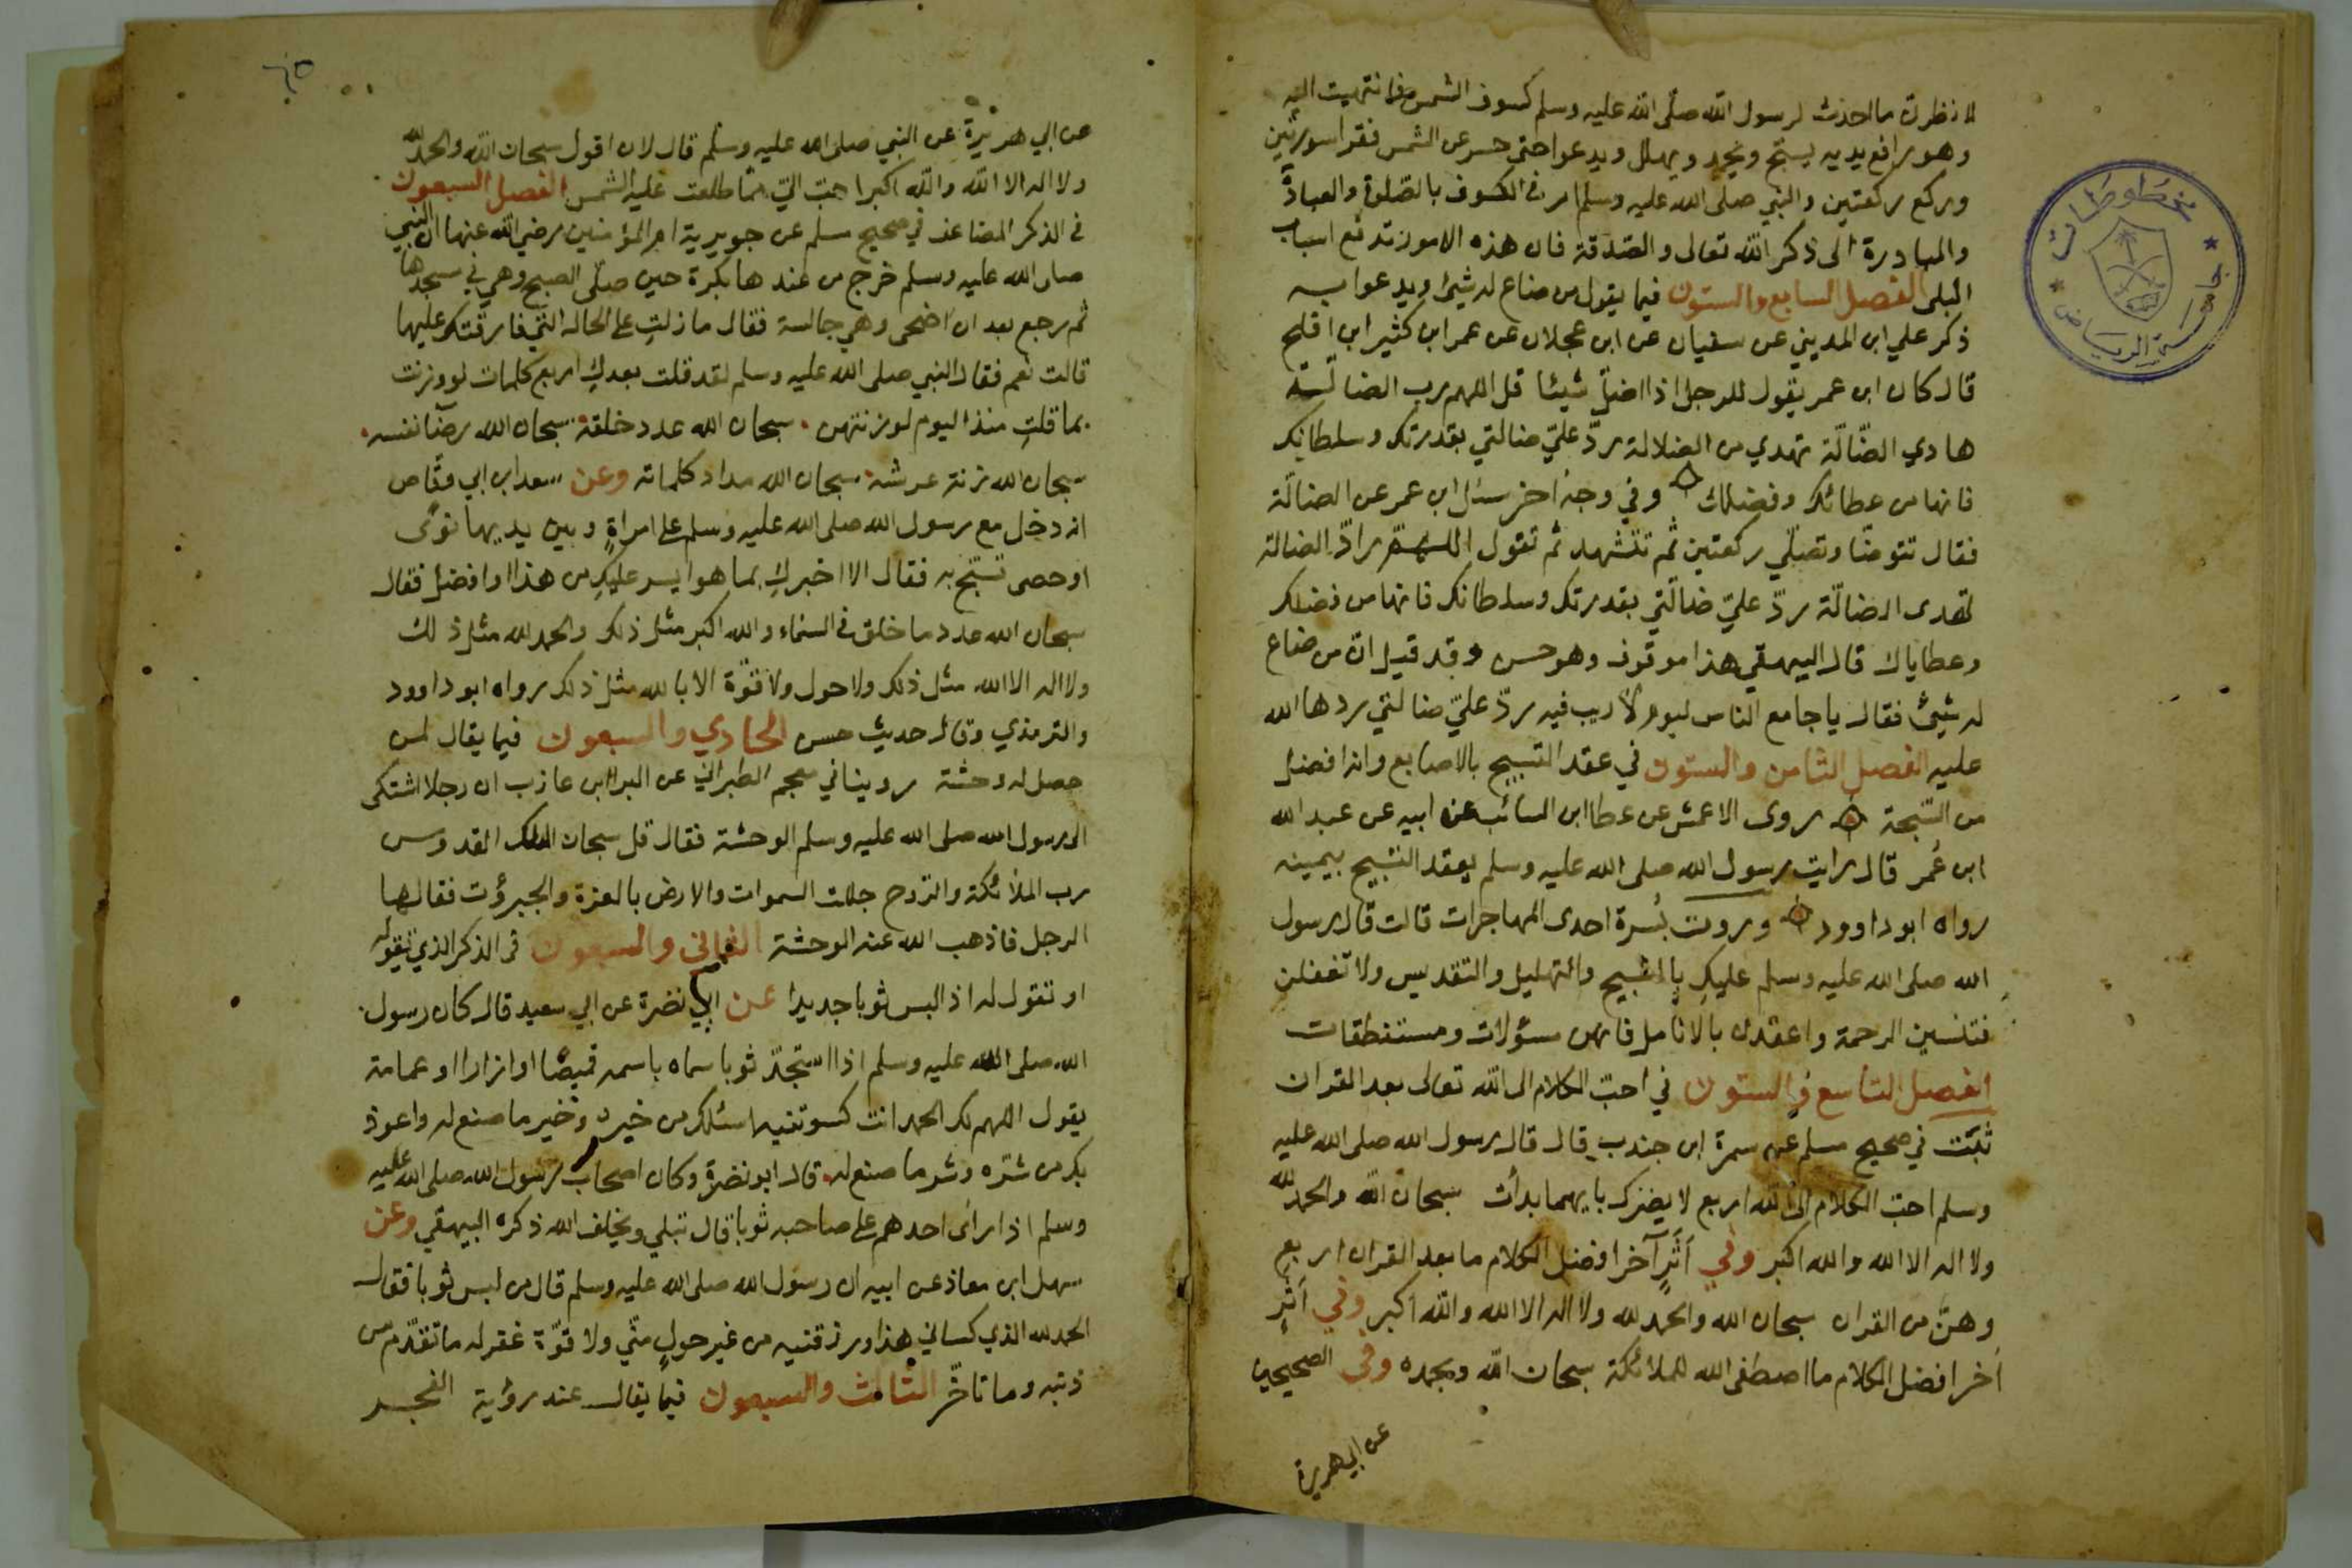 لانظرن ما احدث لرسول الله صلى الله عليه وسلم كسوف الشمس فانتهيت اليه
وهو رافع يديه يسبّح ويحمد ويهلل ويدعو احتى حسر عن الشمس فقرا سورتين
وركع ركعتين والنبي صلى الله عليه وسلم امر في الكسوف بالصّلوة والعبادة
والمبادرة الى ذكر الله تعالى والصّدقة فان هذه الامور تدفع اسباب
البلى الفصل السابع والستون فيما يقول من ضاع له شيئ ويدعوا به
ذكر علي ابن المديني عن سفيان عن ابن عجلان عن عمر ابن كثير ابن افلح
قال كان ابن عمر يقول للرجل اذا اضلّ شيئا قل اللهم رب الضالّة
هادي الضّالّة تهدي من الضلالة ردّ عليّ ضالتي بقدرتك وسلطانك
فانها من عطائك وفضلك وفي وجه اخر سئل ابن عمر عن الضالّة
فقال تتوضّا وتصلّي ركعتين ثم تتشهد ثم تقول اللهمّ رادّ الضالة
تهدى الضالّة ردّ عليّ ضالّتي بقدرتك وسلطانك فانها من فضلك
وعطاياك قال البيهقي هذا موقوف وهو حسن وقد قيل انّ من ضاع
له شيئ فقال يا جامع الناس ليوم لا ريب فيه ردّ عليّ ضالتي ردها الله
عليه الفصل الثامن والستون في عقد التسبيح بالاصابع وانه افضل
من السّبحة روى الاعمش عن عطا ابن السائب عن ابيه عن عبد الله
ابن عُمر قال رايت رسول الله صلى الله عليه وسلم يعقد التسبيح بيمينه
رواه ابو داوود وروت بُسرة احدى المهاجرات قالت قال رسول
الله صلى الله عليه وسلم عليكِ بالتسبيح والتهليل والتقديس ولا تغفلن
فتنسين الرحمة واعقدن بالانامل فانهن مسؤلات ومستنطقات
الفصل التاسع والستون في احبّ الكلام الى الله تعالى بعد القران
ثبَتت في صحيح مسلم عن سمرة ابن جندب قال قال رسول الله صلى الله عليه
وسلم احبّ الكلام الى الله اربع لا يضرك بايهما بدأت سبحان الله والحمد لله
ولا اله الا الله والله اكبر وفي اَثَرٍ آخر افضل الكلام ما بعد القران اربع
وهنّ من القران سبحان الله والحمد لله ولا اله الا الله والله اكبر وفي اَثَرٍ
اَخر افضل الكلام ما اصطفى الله للملائكة سبحان الله وبحمده وفي الصحيحين
عن ابي هريرة
مخطوطات
جامعة الرياض
٦٥
عن ابي هريرة عن النبي صلى الله عليه وسلم قال لان اقول سبحان الله والحمد لله
ولا اله الا الله والله اكبر احبّ اليّ ممّا طلعت عليه الشمس الفصل السبعون
في الذكر المضاعف في صحيح مسلم عن جويرية ام المؤمنين رضي الله عنها ان النبي
صلى الله عليه وسلم خرج من عندها بكرة حين صلّى الصبح وهي في مسجدها
ثم رجع بعد ان اضحى وهي جالسة فقال ما زلتِ على الحالة التي فارقتكِ عليها
قالت نعم فقال النبي صلى الله عليه وسلم لقد قلت بعدكِ اربع كلمات لو وزنت
بما قلتِ منذ اليوم لوزنتهن سبحان الله عدد خلقه سبحان الله رضَا نفسه
سبحان الله زنة عرشه سبحان الله مداد كلماته وعن سعد ابن ابي وقّاص
انه دخل مع رسول الله صلى الله عليه وسلم على امراةٍ وبين يديها نوًى
او حصى تسبّح به فقال الا اخبركِ بما هو ايسر عليكِ من هذا او افضل فقال
سبحان الله عدد ما خلق في السماء والله اكبر مثل ذلك والحمد لله مثل ذلك
ولا اله الا الله مثل ذلك ولا حول ولا قوّة الا بالله مثل ذلك رواه ابو داوود
والترمذي وقال حديث حسن الحادي والسبعون فيما يقال لمن
حصل له وحشة روينا في معجم الطبراني عن البرا ابن عازب ان رجلا اشتكى
الى رسول الله صلى الله عليه وسلم الوحشة فقال قل سبحان الملك القدوس
رب الملائكة والرّوح جللت السموات والارض بالعزة والجبرؤت فقالها
الرجل فاذهب الله عنه الوحشة الثاني والسبعون في الذكر الذي تقوله
او تقول له اذ البس ثوبا جديدا عن ابي نضرة عن ابي سعيد قال كان رسول
الله صلى الله عليه وسلم اذا استجدّ ثوبا سماه باسمه قميصًا او ازارا او عمامة
يقول اللهم لك الحمد انت كسوتنيه اسئلك من خيره وخير ما صنع له واعوذ
بك من شرّه وشر ما صنع له قال ابو نضرة وكان اصحاب رسول الله صلى الله عليه
وسلم اذا رائ احدهم على صاحبه ثوبا قال تبلي ويخلف الله ذكره البيهقي وعن
سهل ابن معاذ عن ابيه ان رسول الله صلى الله عليه وسلم قال من لبس ثوبا فقال
الحمد لله الذي كساني هذا ورزقنيه من غير حولٍ منّي ولا قوّة غفر له ما تقدّم من
ذنبه وما تاخّر الثالث والسبعون فيما يقال عند رؤية الفجر